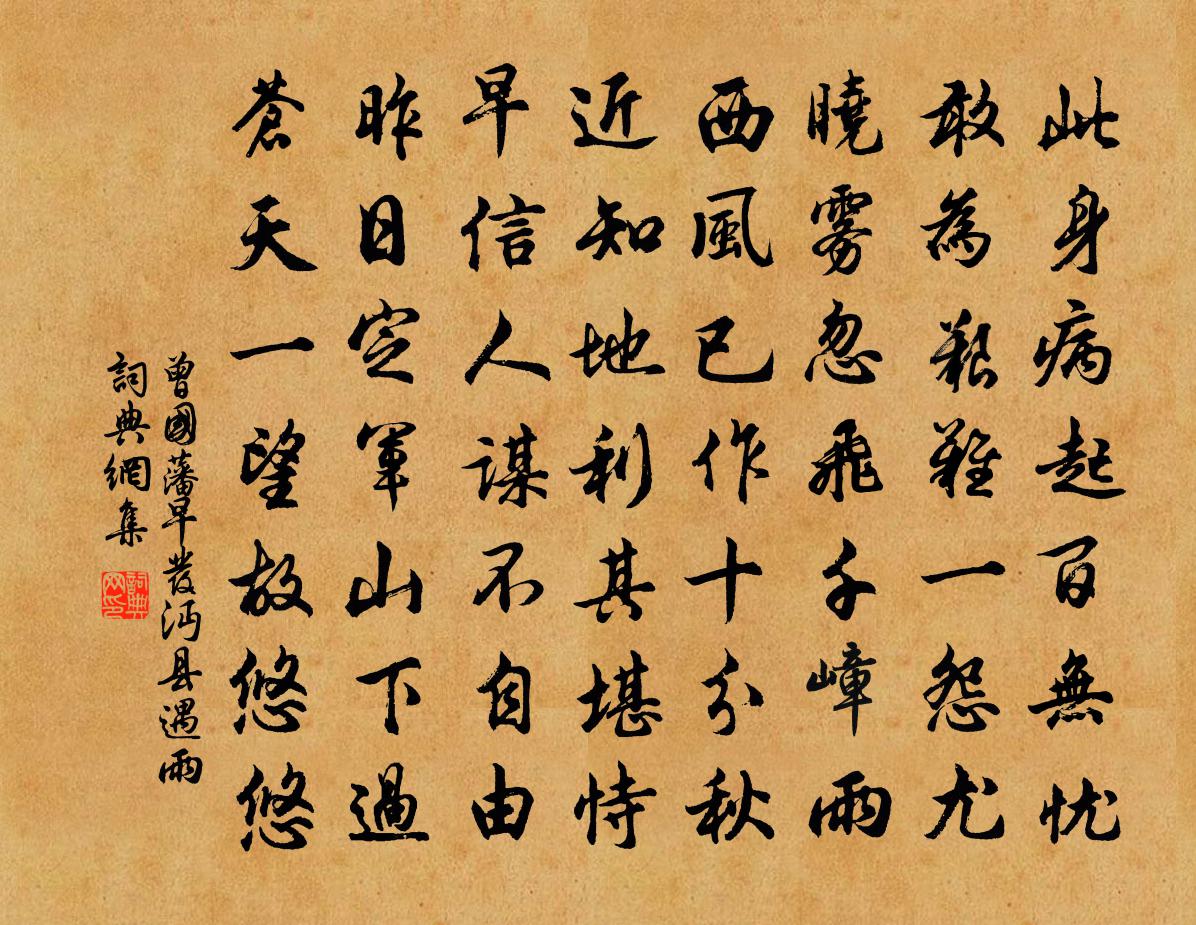 此身病起百無忧
敢為艱難一怨尤
曉霧忽飛千嶂雨
西風已作十分秋
近知地利其堪恃
早信人謀不自由
昨日定軍山下過
蒼天一望故悠悠
曾國藩早發沔县遇雨
詞典網集
詞典网印